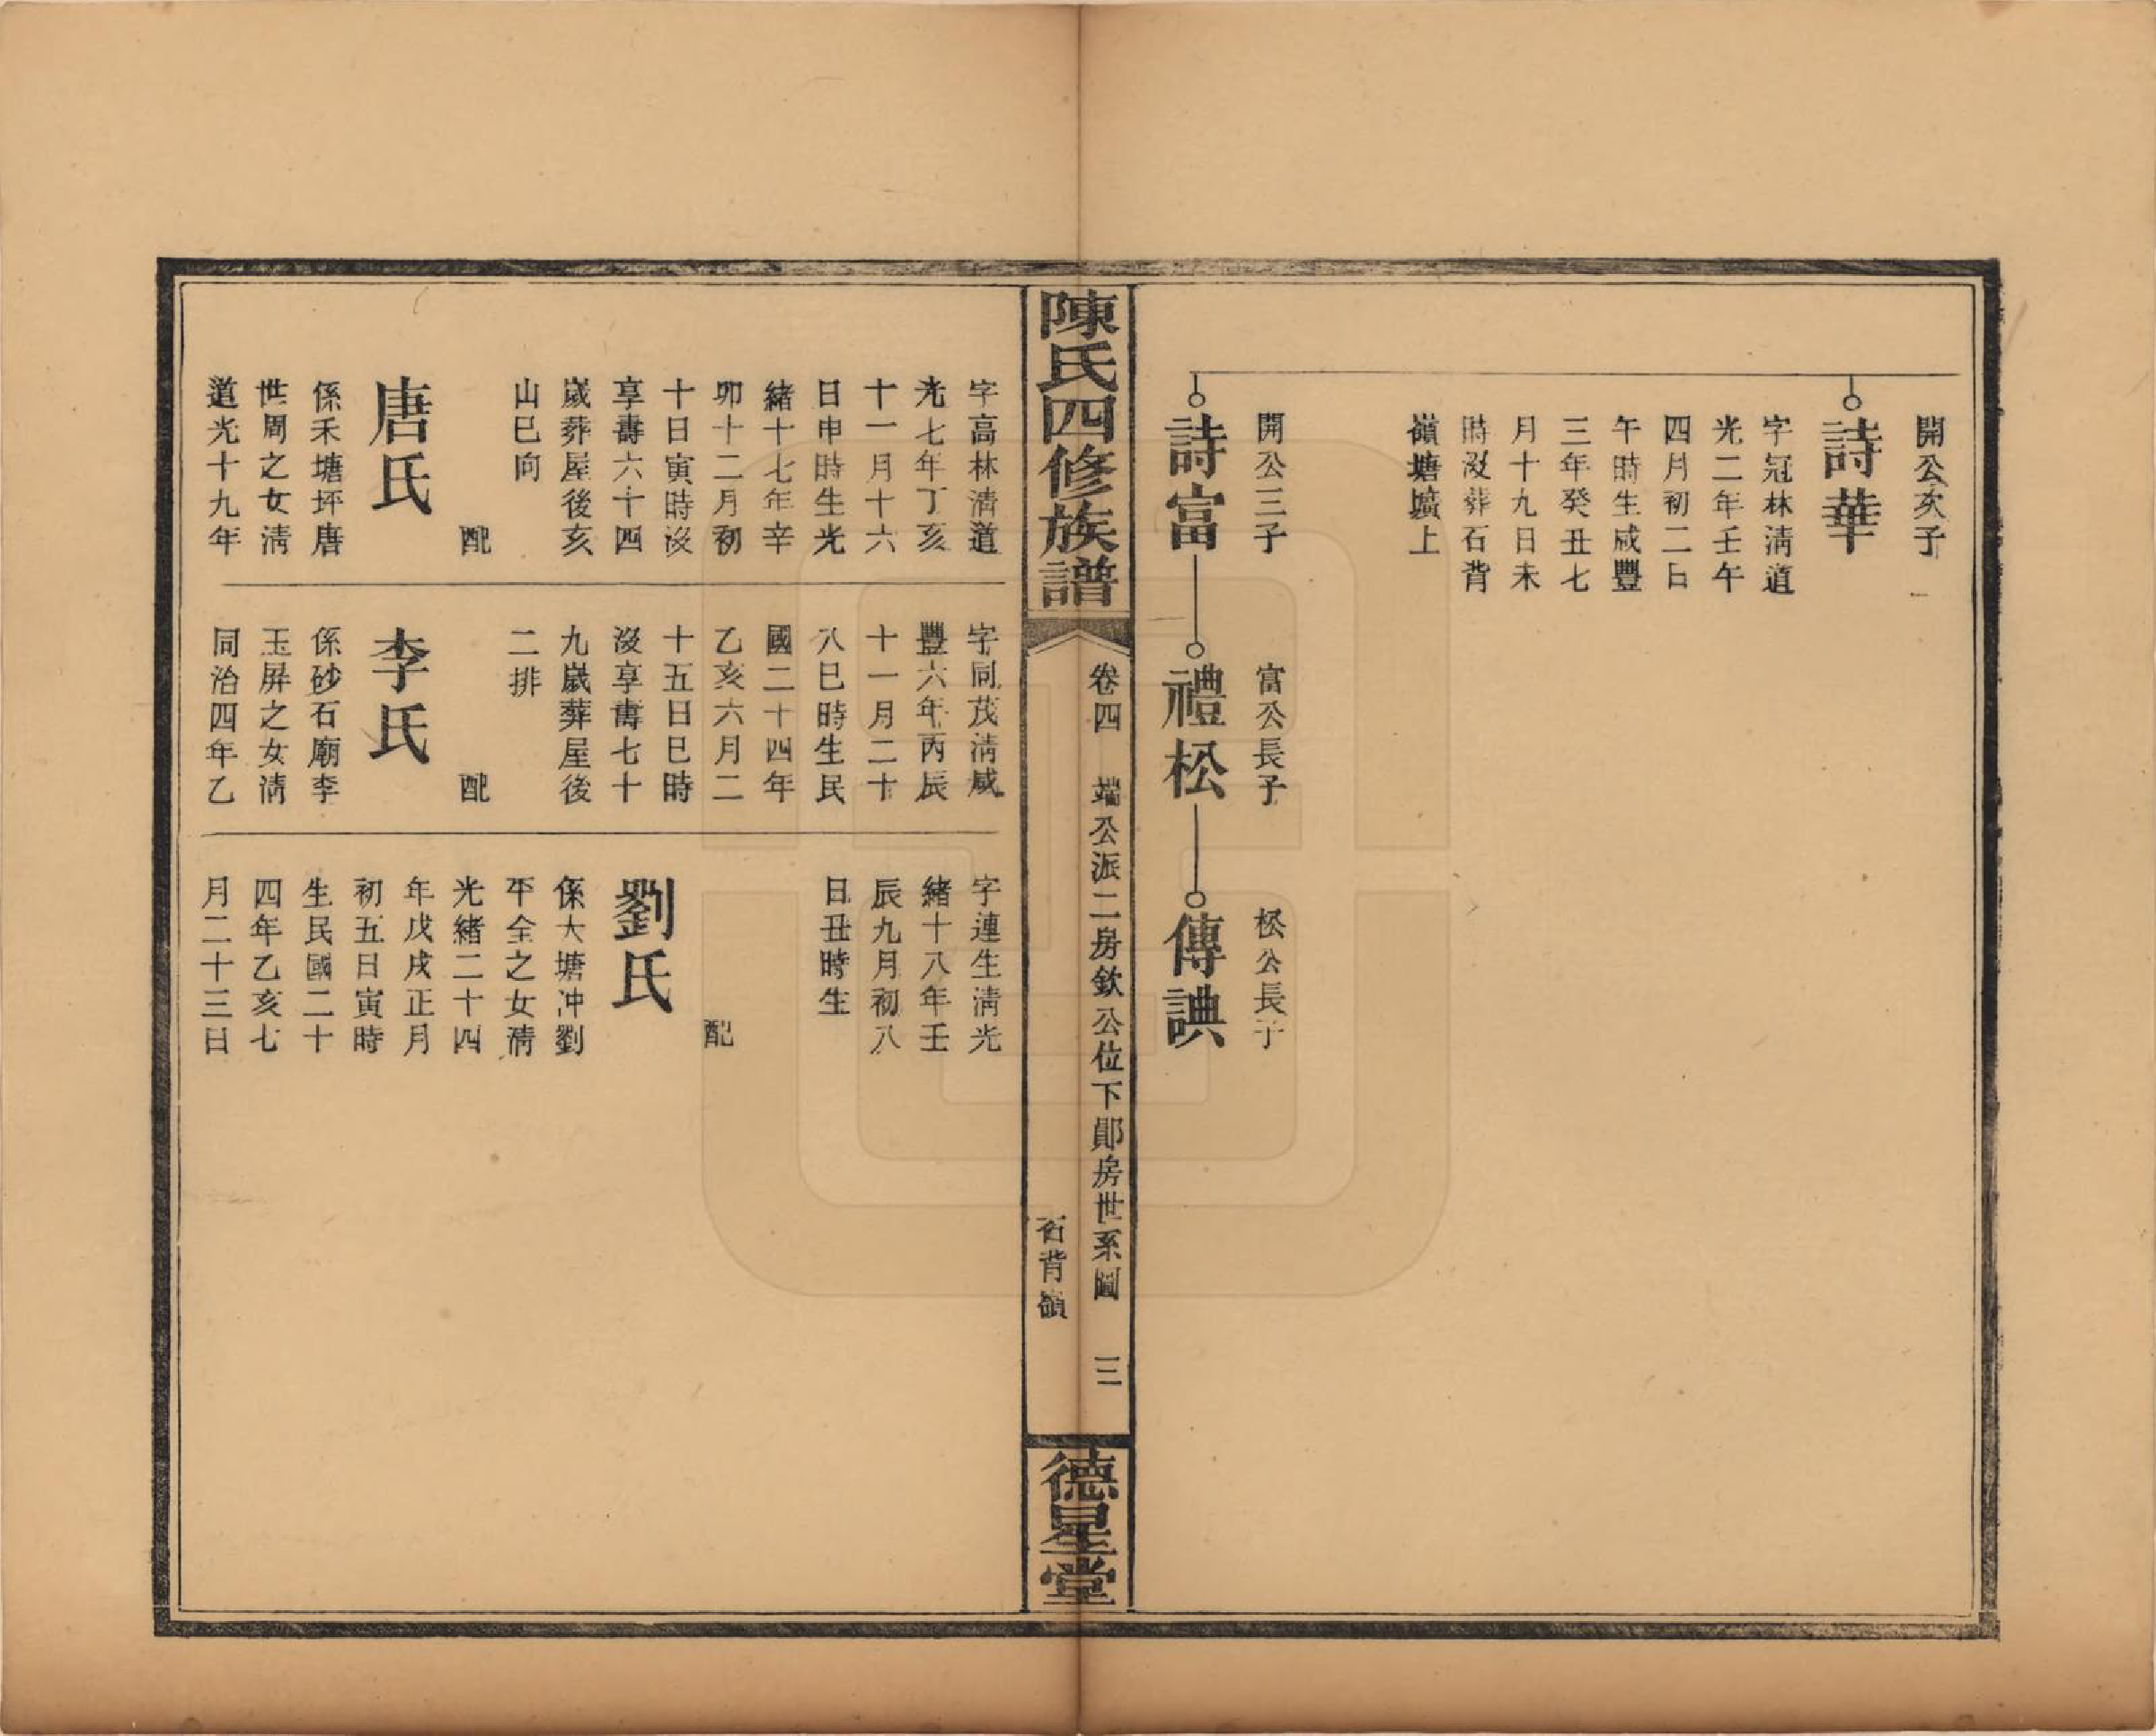 開公次子
詩華
字冠林清道
光二年壬午
四月初二日
午時生咸豐
三年癸丑七
月十九日未
時沒葬石背
嶺塘墈上
開公三子
詩富
富公長子
禮松
松公長子
傳䛑
陳氏四修族譜
卷四　端公派二房欽公位下鄖房世系圖　三
石背嶺
德星堂
字高林清道
光七年丁亥
十一月十六
日申時生光
緒十七年辛
卯十二月初
十日寅時沒
享壽六十四
歲葬屋後亥
山巳向
配
唐氏
係禾塘坪唐
世周之女清
道光十九年
字同茂清咸
豐六年丙辰
十一月二十
八巳時生民
國二十四年
乙亥六月二
十五日巳時
沒享壽七十
九歲葬屋後
二排
配
李氏
係砂石廟李
玉屏之女清
同治四年乙
字連生清光
緒十八年壬
辰九月初八
日丑時生
配
劉氏
係大塘冲劉
平全之女清
光緒二十四
年戊戌正月
初五日寅時
生民國二十
四年乙亥七
月二十三日